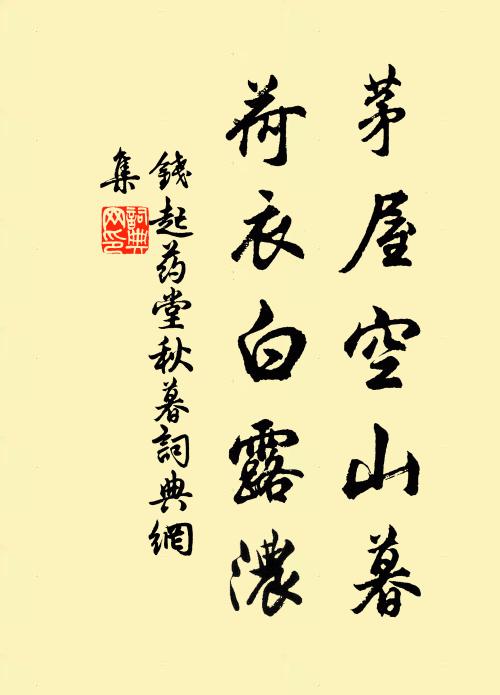 茅屋空山暮
荷衣白露濃
錢起药堂秋暮詞典網
集
詞典
网印